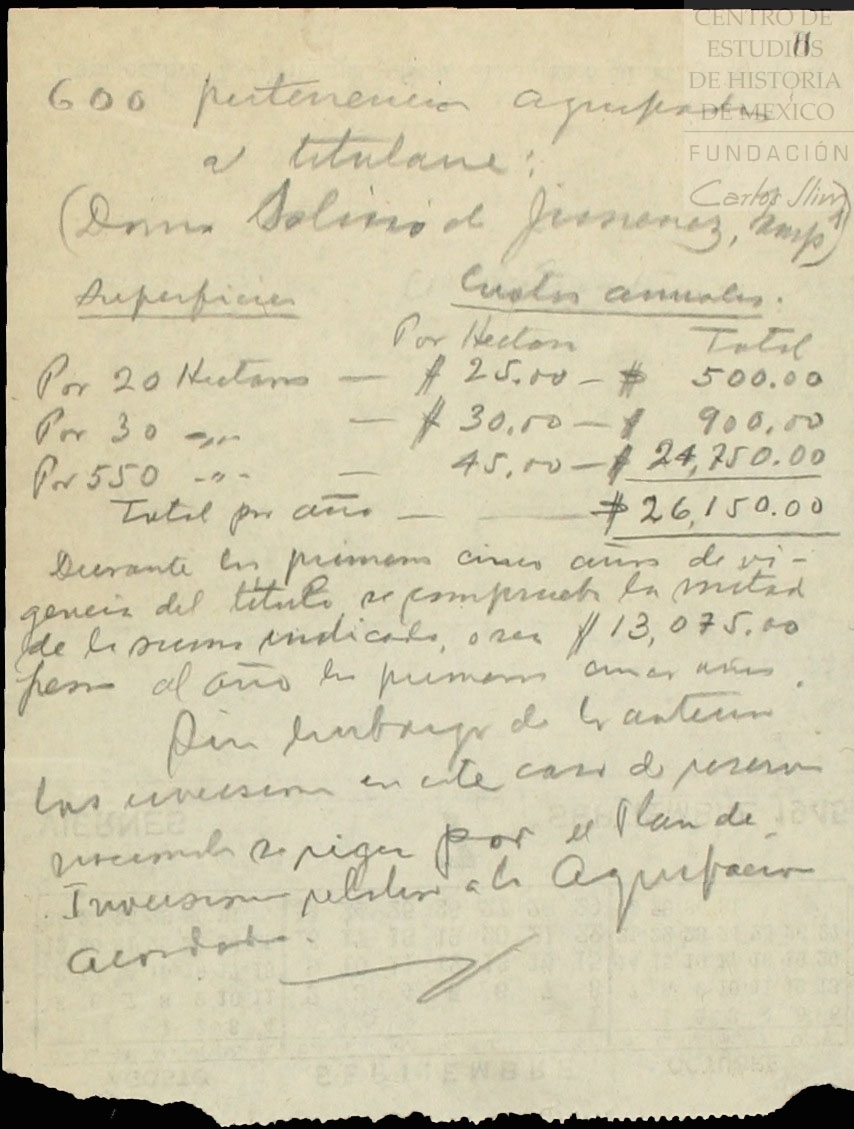 CENTRO DE
ESTUDIOS
DE HISTORIA
DE MÉXICO
FUNDACIÓN
Carlos Slim
11
600 pertenencias agrupadas
a titularse:
(Doma Salinas de Jimenez,
Superficies Cuotas anuales.
Por Hectara Total
Por 20 Hectaras — $ 25.00 — $ 500.00
Por 30 -„- — $ 30.00 — $ 900.00
Por 550 -"- — 45.00 — $ 24,750.00
Total por año — $ 26,150.00
Durante los primeros cinco años de vi-
gencia del título, se comprueba la mitad
de la suma indicada, o sea $ 13,075.00
pesos al año los primeros cinco años.
Sin embargo de lo anterior
las inversiones en este caso de reservas
nacionales se rigen por el Plan de
Inversiones relativo a la Agrupación
acordada.
VIERNES
SEPTIEMBRE 1945
AGOSTO SEPTIEMBRE OCTUBRE